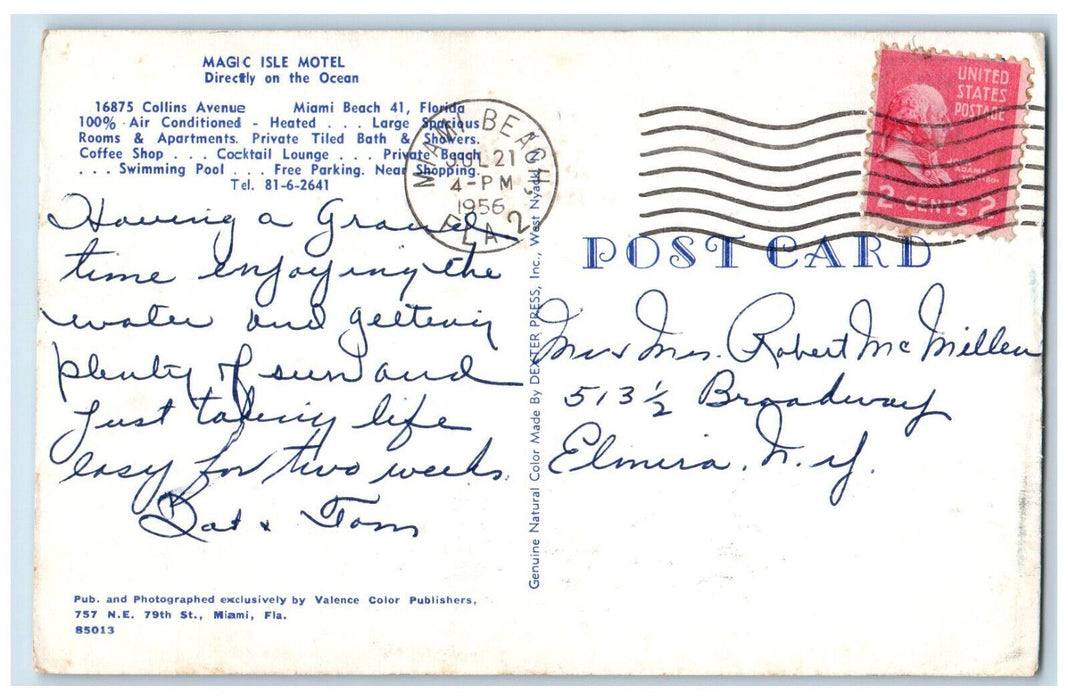 MAGIC ISLE MOTEL
Directly on the Ocean
16875 Collins Avenue Miami Beach 41, Florida
100% Air Conditioned - Heated . . . Large Spacious
Rooms & Apartments. Private Tiled Bath & Showers.
Coffee Shop . . . Cocktail Lounge . . . Private Beach
. . . Swimming Pool . . . Free Parking. Near Shopping.
Tel. 81-6-2641
Having a Grand
time enjoying the
water and getting
plenty of sun and
just taking life
easy for two weeks.
Dot & Tom
Pub. and Photographed exclusively by Valence Color Publishers,
757 N.E. 79th St., Miami, Fla.
85013
MIAMI BEACH
JUL 21
4-PM
1956
FLA. 2
Genuine Natural Color Made By DEXTER PRESS, Inc., West Nyack
UNITED
STATES
POSTAGE
JOHN
ADAMS
2 CENTS 2
POST CARD
Mr & Mrs. Robert McMillen
513 ½ Broadway
Elmira, N.Y.